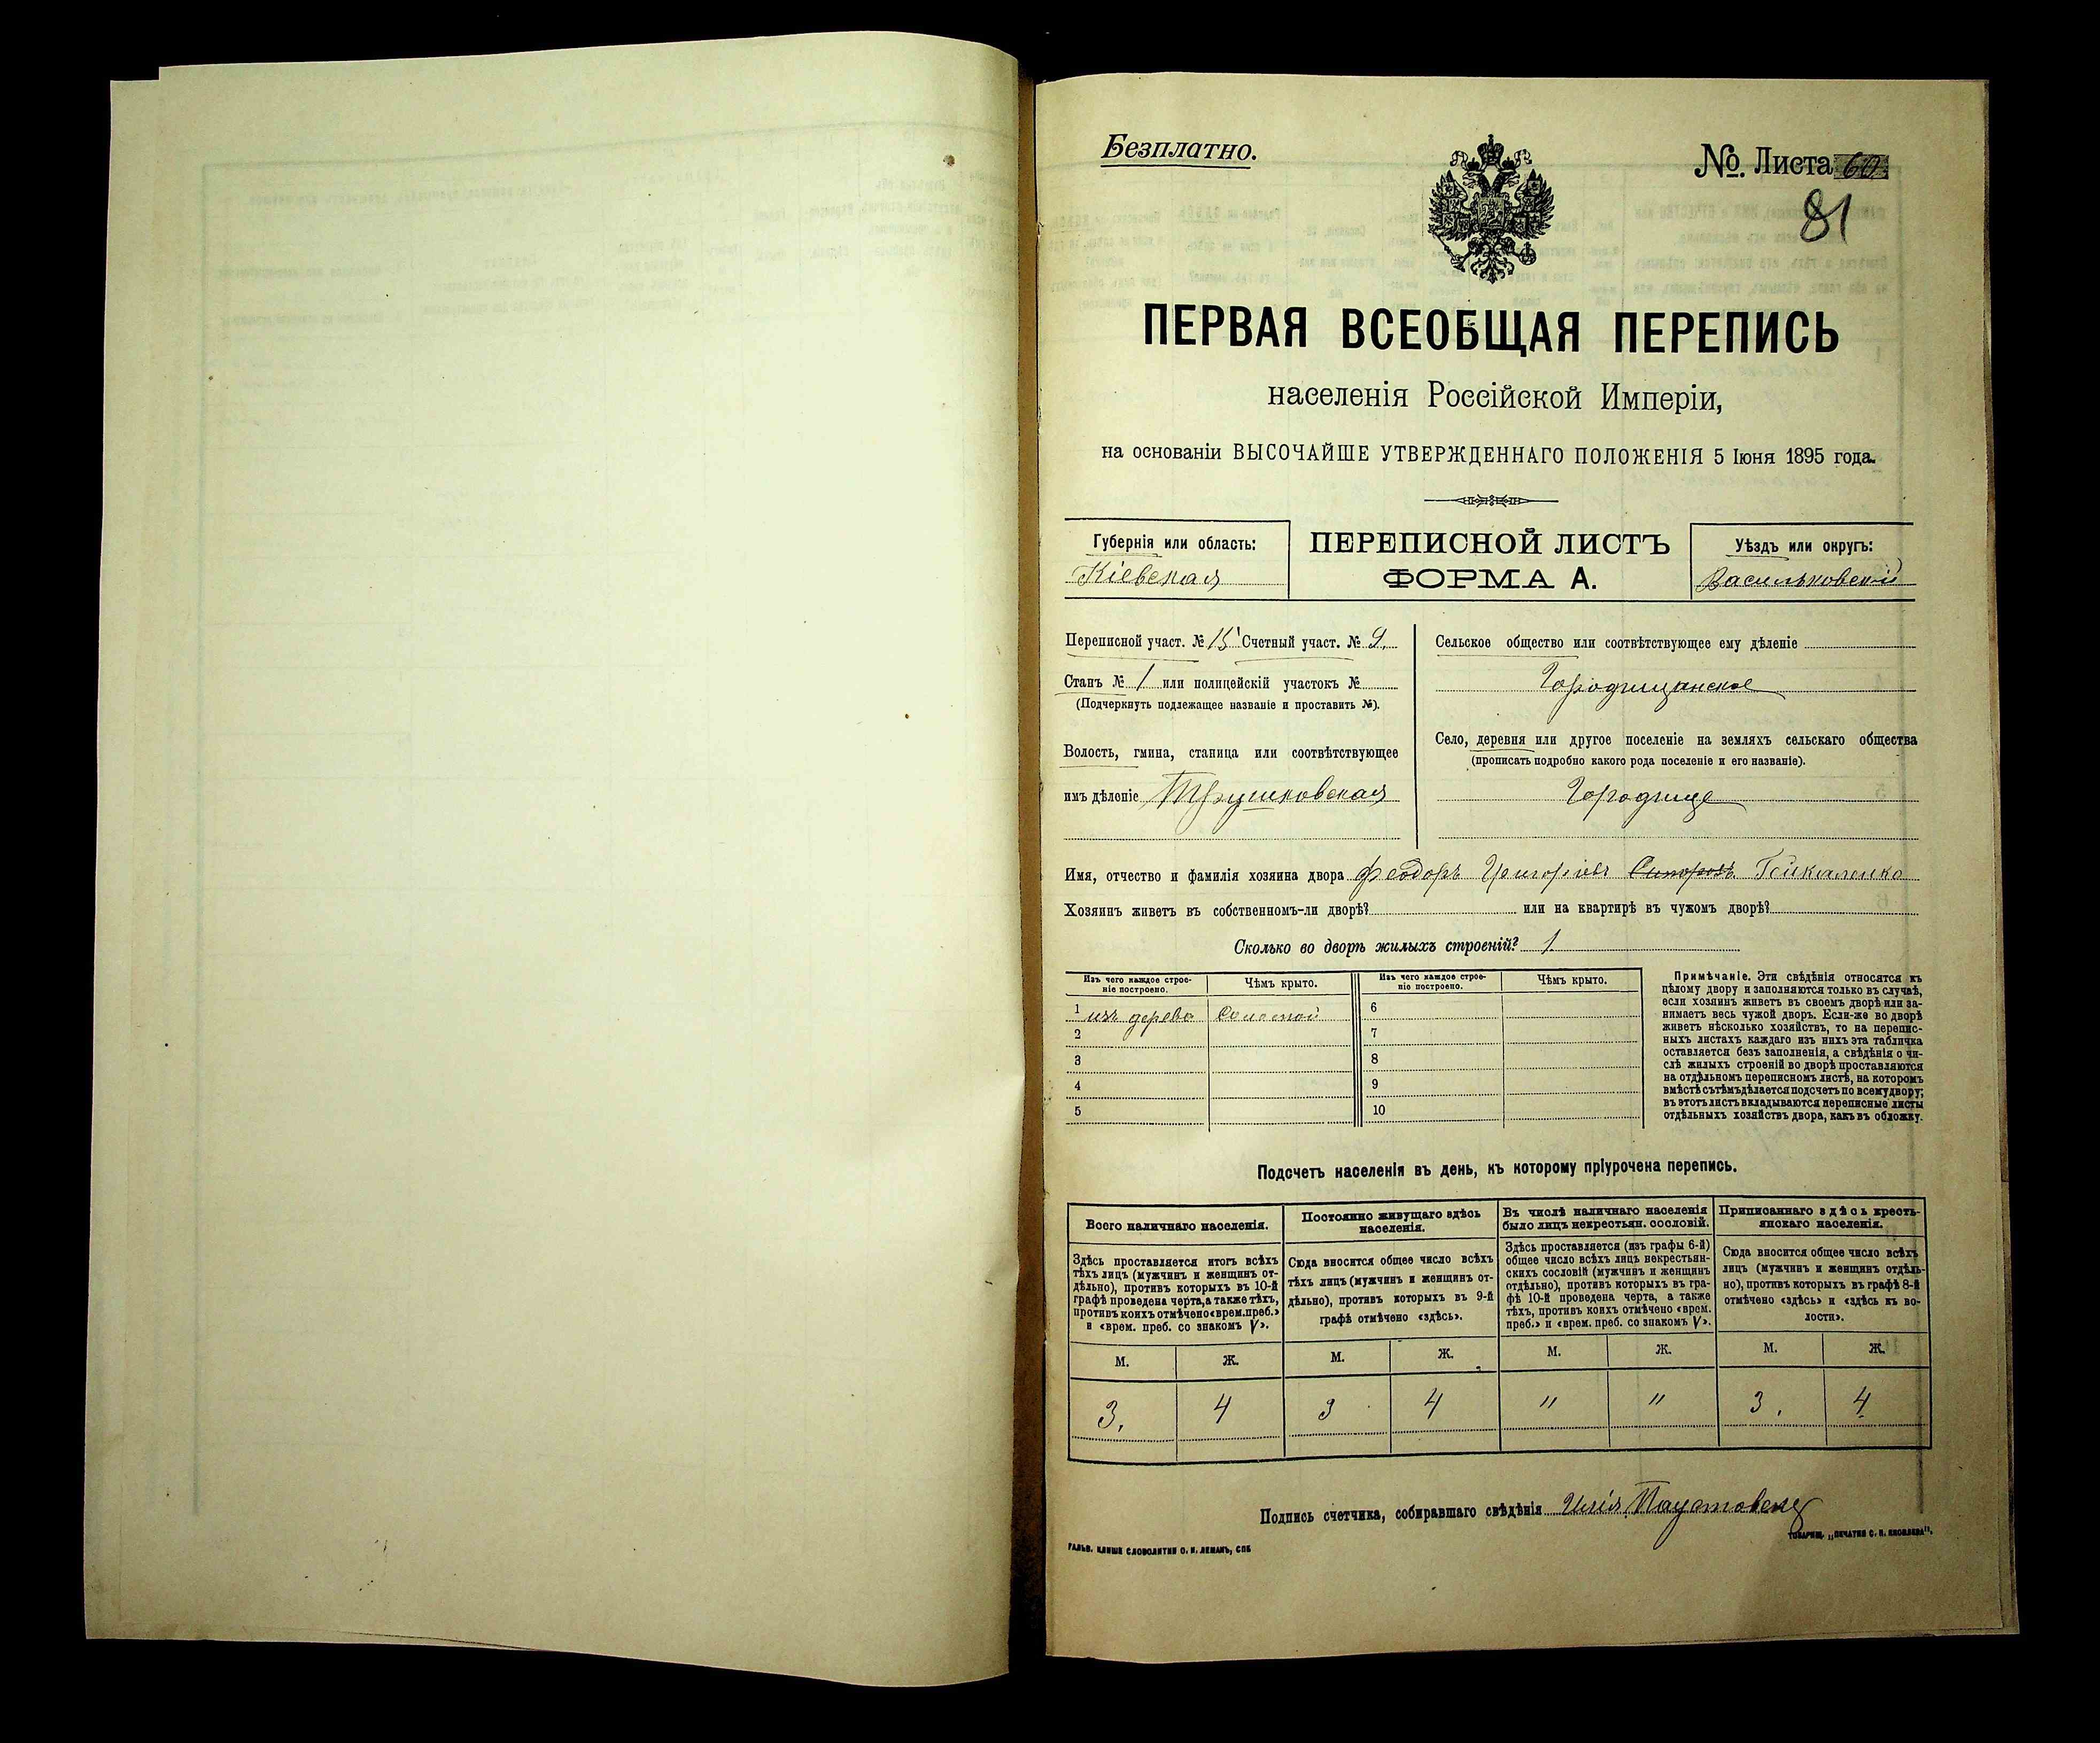 Безплатно.
№. Листа 60
81
ПЕРВАЯ ВСЕОБЩАЯ ПЕРЕПИСЬ
населенія Россійской Имперіи,
на основаніи ВЫСОЧАЙШЕ УТВЕРЖДЕННАГО ПОЛОЖЕНІЯ 5 Іюня 1895 года.
Губернія или область:
Кіевская
ПЕРЕПИСНОЙ ЛИСТЪ
ФОРМА А.
Уѣздъ или округъ:
Васильковскій
Переписной участ. № 15 Счетный участ. № 9.
Станъ № 1 или полицейскій участокъ №
(Подчеркнуть подлежащее названіе и проставить №).
Волость, гмина, станица или соотвѣтствующее
имъ дѣленіе Трушковская
Сельское общество или соотвѣтствующее ему дѣленіе
Городищанское
Село, деревня или другое поселеніе на земляхъ сельскаго общества
(прописать подробно какого рода поселеніе и его названіе).
Городище
Имя, отчество и фамилія хозяина двора Феодоръ Григоріевъ
Хозяинъ живетъ въ собственномъ-ли дворѣ? или на квартирѣ въ чужомъ дворѣ?
Сколько во дворѣ жилыхъ строеній? 1
Изъ чего каждое строе-
ніе построено.
Чѣмъ крыто.
Изъ чего каждое строе-
ніе построено.
Чѣмъ крыто.
1 изъ дерева Соломой 6
2 7
3 8
4 9
5 10
Примѣчаніе. Эти свѣдѣнія относятся къ
цѣлому двору и заполняются только въ случаѣ,
если хозяинъ живетъ въ своемъ дворѣ или за-
нимаетъ весь чужой дворъ. Если-же во дворѣ
живетъ нѣсколько хозяйствъ, то на перепис-
ныхъ листахъ каждаго изъ нихъ эта табличка
оставляется безъ заполненія, а свѣдѣнія о чи-
слѣ жилыхъ строеній во дворѣ проставляются
на отдѣльномъ переписномъ листѣ, на которомъ
вмѣстѣ съ тѣмъ дѣлается подсчетъ по всему двору;
въ этотъ листъ вкладываются переписные листы
отдѣльныхъ хозяйствъ двора, какъ въ обложку.
Подсчетъ населенія въ день, къ которому пріурочена перепись.
Всего наличнаго населенія.
Здѣсь проставляется итогъ всѣхъ
тѣхъ лицъ (мужчинъ и женщинъ от-
дѣльно), противъ которыхъ въ 10-й
графѣ проведена черта, а также тѣхъ,
противъ коихъ отмѣчено «врем. преб.»
и «врем. преб. со знакомъ V».
Постоянно живущаго здѣсь
населенія.
Сюда вносится общее число всѣхъ
тѣхъ лицъ (мужчинъ и женщинъ от-
дѣльно), противъ которыхъ въ 9-й
графѣ отмѣчено «здѣсь».
Въ числѣ наличнаго населенія
было лицъ некрестьян. сословій.
Здѣсь проставляется (изъ графы 6-й)
общее число всѣхъ лицъ некрестьян-
скихъ сословій (мужчинъ и женщинъ
отдѣльно), противъ которыхъ въ гра-
фѣ 10-й проведена черта, а также
тѣхъ, противъ коихъ отмѣчено «врем.
преб.» и «врем. преб. со знакомъ V».
Приписаннаго здѣсь кресть-
янскаго населенія.
Сюда вносится общее число всѣхъ
лицъ (мужчинъ и женщинъ отдѣль-
но), противъ которыхъ въ графѣ 8-й
отмѣчено «здѣсь» и «здѣсь къ во-
лости».
М. Ж. М. Ж. М. Ж. М. Ж.
3. 4 3 4 " " 3. 4
Подпись счетчика, собиравшаго свѣдѣнія Илія Паустовскій
ГАЛЬВ. КЛИШЕ СЛОВОЛИТНИ О. И. ЛЕМАНЪ, СПБ
ТОВАРИЩ. „ПЕЧАТНЯ С. П. ЯКОВЛЕВА".